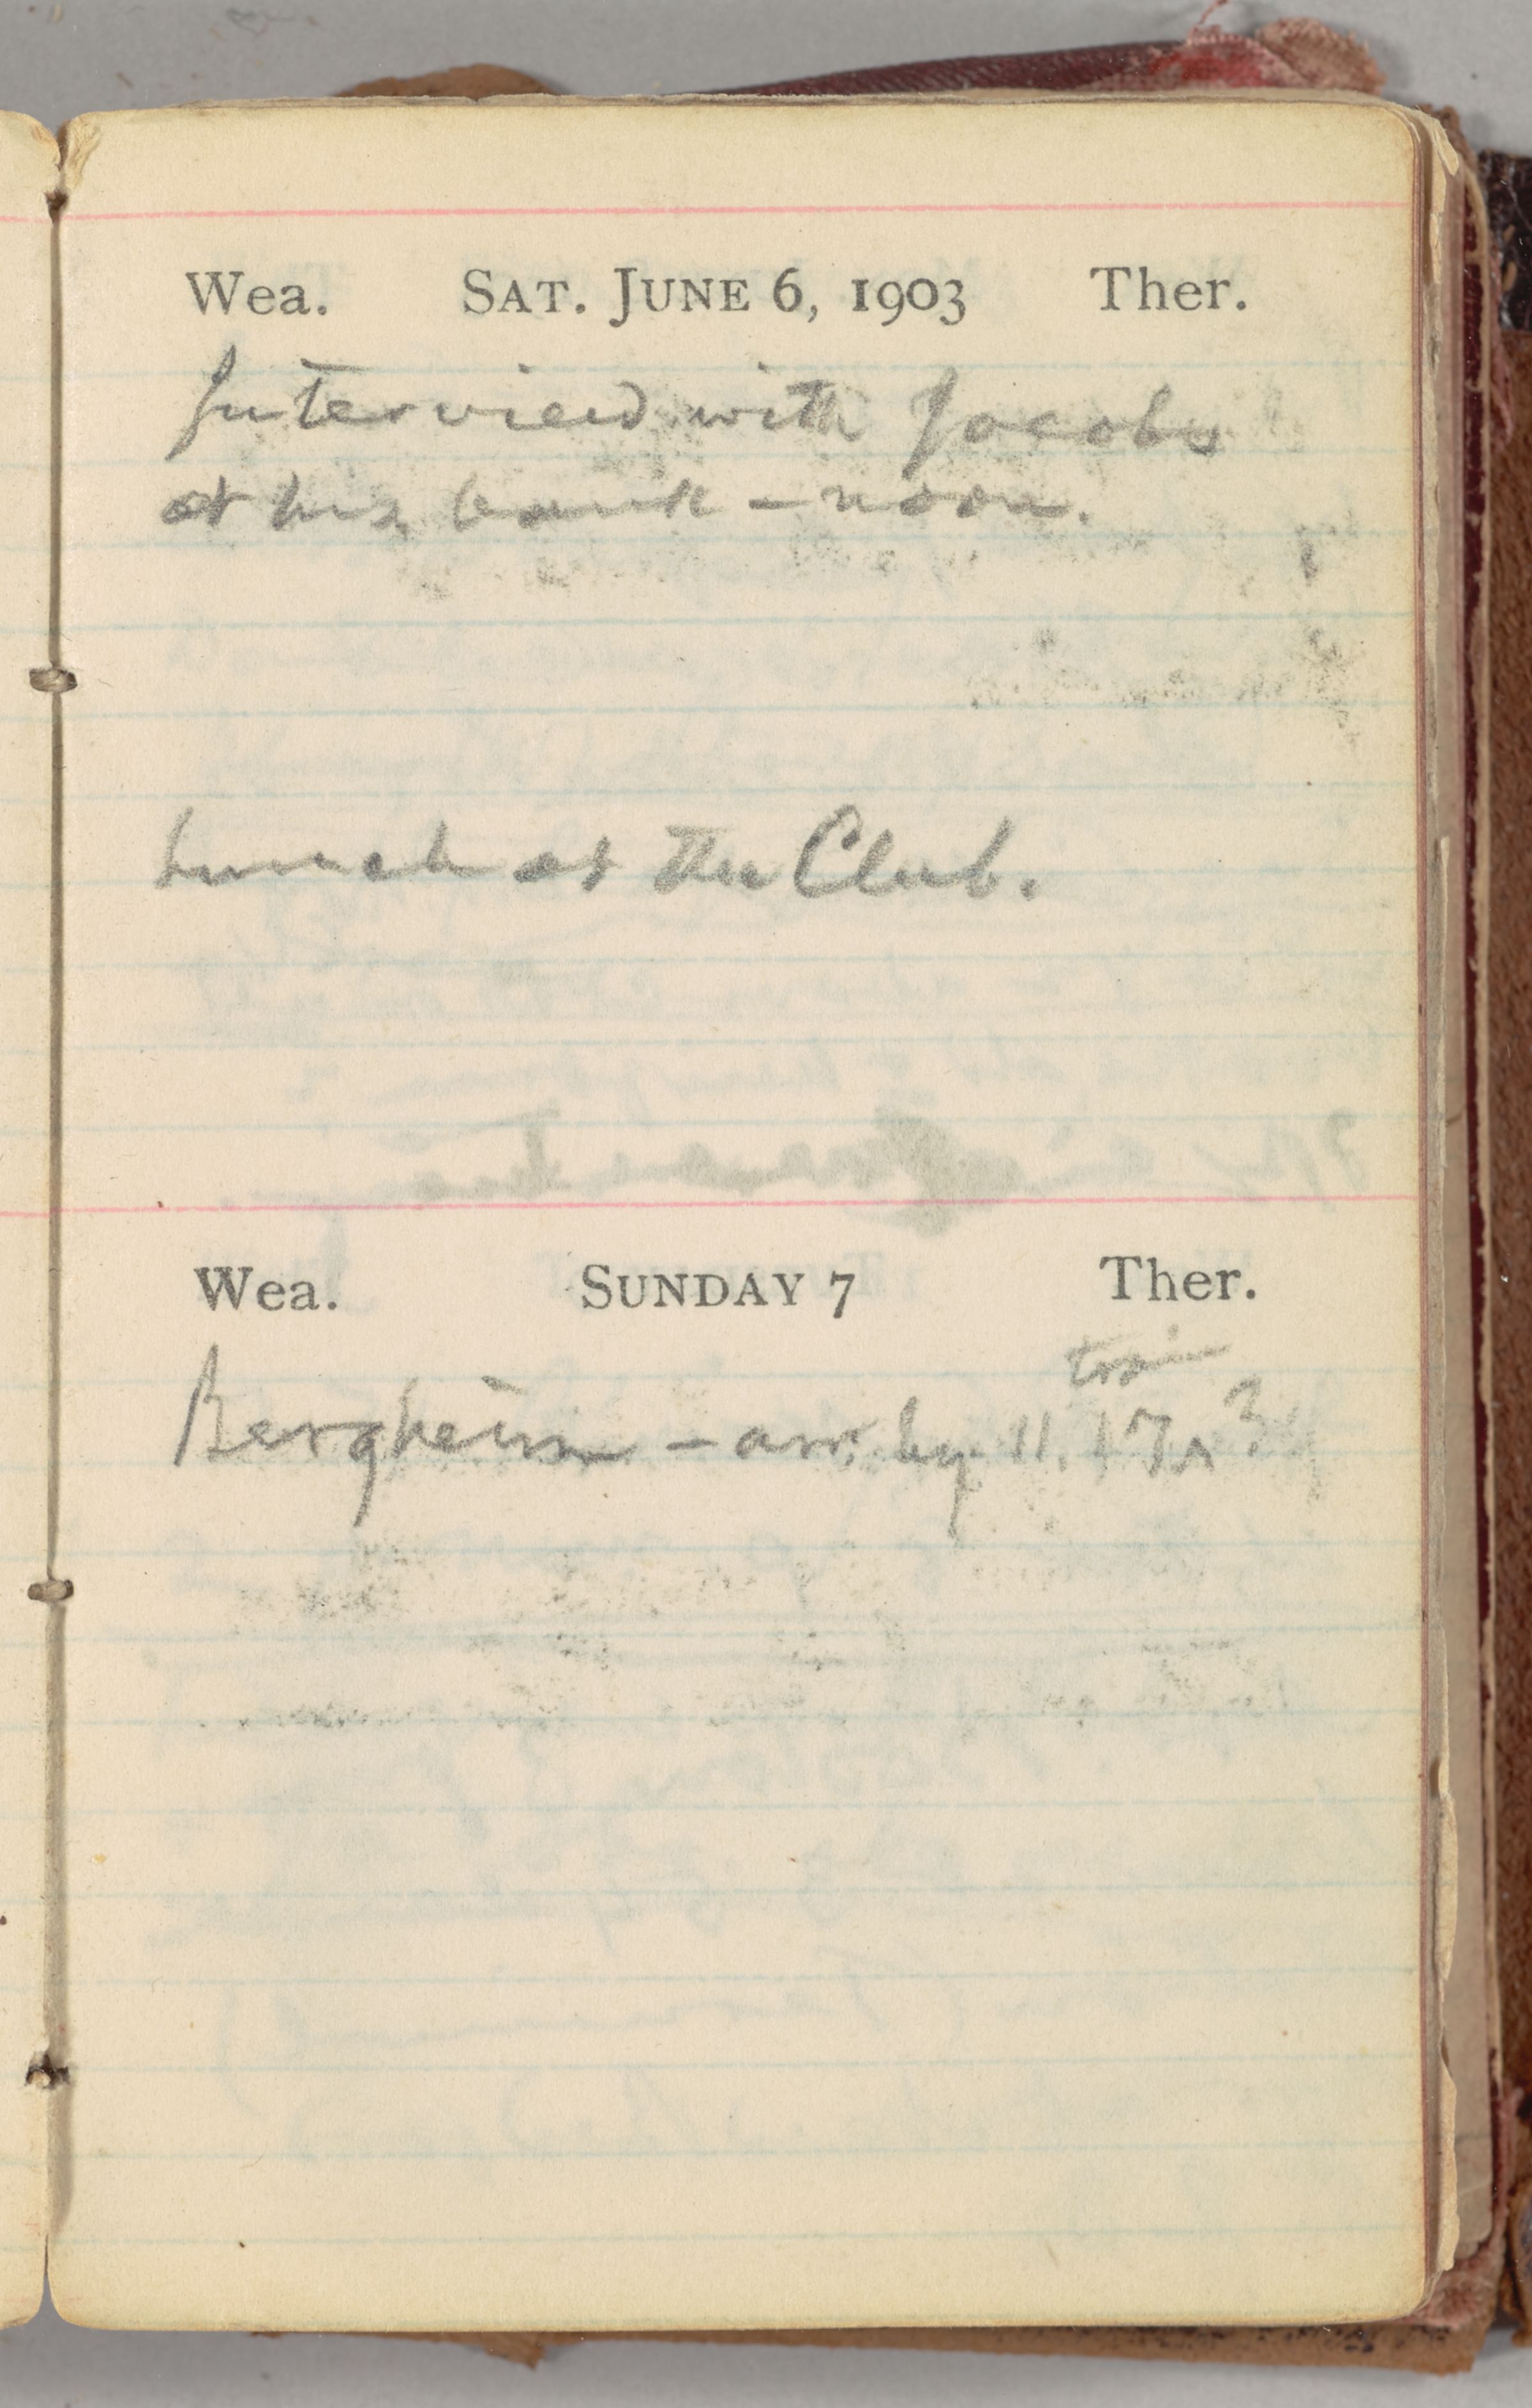 Wea. SAT. JUNE 6, 1903 Ther.
Interview with Jacobs
at his bank - noon.
Lunch at the Club.
Wea. SUNDAY 7 Ther.
train
Bergheim - arr. by 11.17 ^ ?